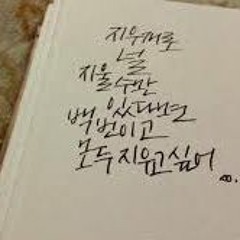 지우개로
널
지울 수만
있다면
백번이고
모두 지우고 싶어